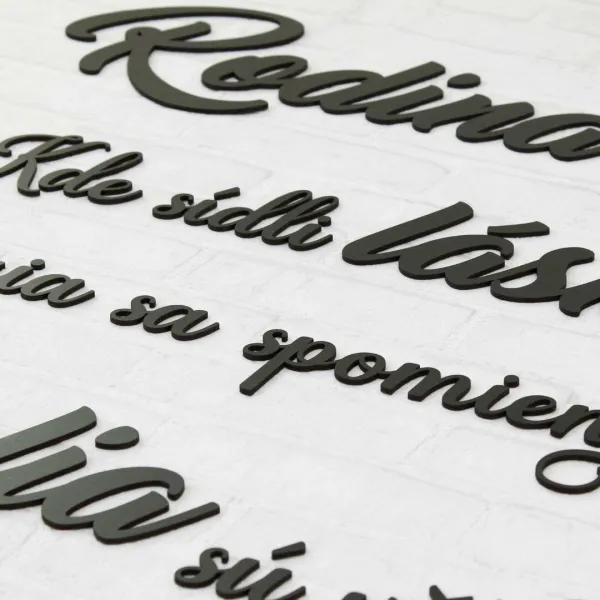 Rodina
Kde sídli lás
ia sa spomien
ia sú